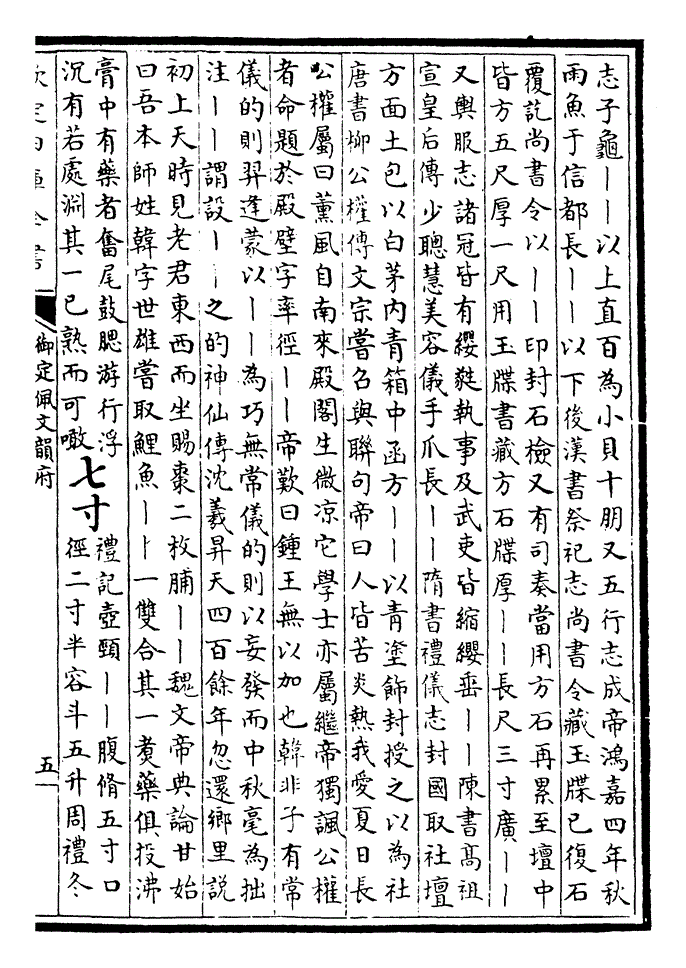 志子龜｜｜以上直百為小貝十朋又五行志成帝鴻嘉四年秋
雨魚于信都長｜｜以下後漢書祭祀志尚書令藏玉牒已復石
覆訖尚書令以｜｜印封石檢又有司奏當用方石再累至壇中
皆方五尺厚一尺用玉牒書藏方石牒厚｜｜長尺三寸廣｜｜
又輿服志諸冠皆有纓蕤執事及武吏皆縮纓垂｜｜陳書高祖
宣皇后傳少聰慧美容儀手爪長｜｜隋書禮儀志封國取社壇
方面土包以白茅内青箱中函方｜｜以青塗飾封授之以為社
唐書柳公權傳文宗嘗召與聯句帝曰人皆苦炎熱我愛夏日長
公權屬曰薰風自南來殿閣生微凉它學士亦屬繼帝獨諷公權
者命題於殿壁字率徑｜｜帝歎曰鍾王無以加也韓非子有常
儀的則羿逢蒙以｜｜為巧無常儀的則以妄發而中秋毫為拙
注｜｜謂設｜｜之的神仙傳沈羲昇天四百餘年忽還鄉里説
初上天時見老君東西而坐賜棗二枚脯｜｜魏文帝典論甘始
曰吾本師姓韓字世雄嘗取鯉魚｜｜一雙合其一煑藥俱投沸
膏中有藥者奮尾鼓腮游行浮
沉有若處淵其一已熟而可噉
七寸
禮記壺頸｜｜腹脩五寸口
徑二寸半容斗五升周禮冬
欽定四庫全書
御定佩文韻府
五